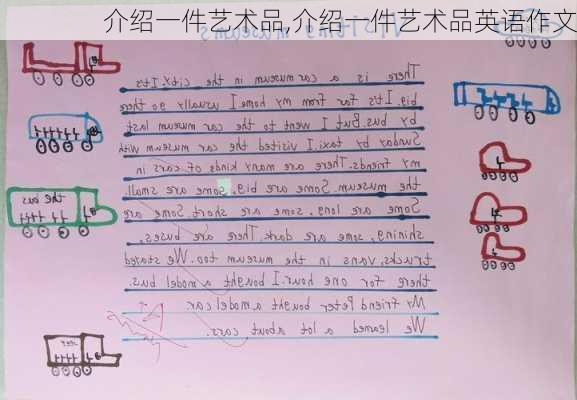 介绍一件艺术品,介绍一件艺术品英语作文
There is a car museum in the city.Its
big.Its far from my home.I usually go there
by bus.But I went to the car museum last
Sunday by taxi.I visited the car museum with
my friends.There are many kinds of cars in
the museum.Some are big, some are small.
Some are long, some are short.Some are
shining, some are dark.There are buses,
trucks, vans in the museum too.We stated
there for one hour.I bought a model bus.
My friend Peter bought a model car
We learned a lot about cars.
the bus